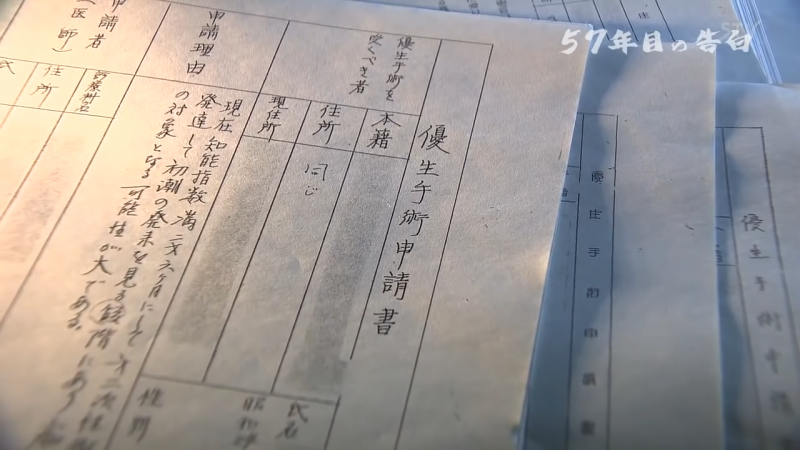 57年目の告白
優生手術申請書
優生手術を
受くべき者
本籍
住所
同じ
現住所
氏名
昭和
性別
申請理由
現在 知能指数満二才六ヶ月にして才二次性徴
発達して初潮の発来を見る段階にあり
の対象となる可能性が大である。
申請者
(医師)
医療科名
住所
氏
優生手術申請書
優生手術申請